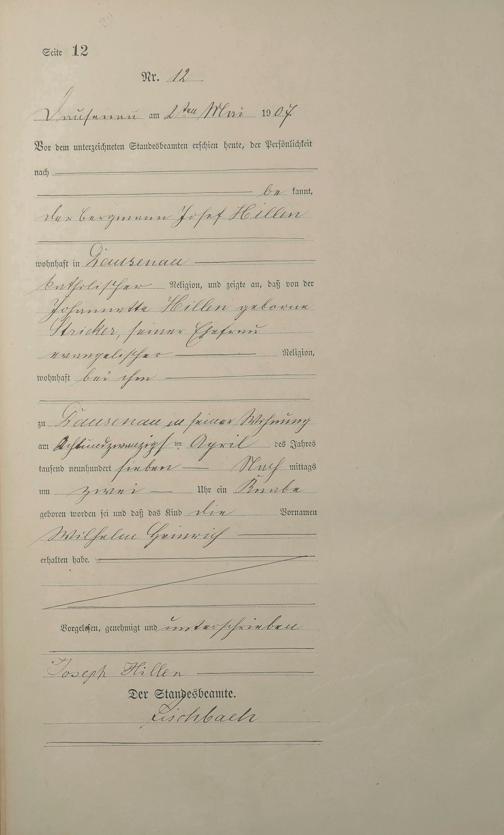 Seite 12
Nr. 12
Dausenau am 2ten Mai 1907
Vor dem unterzeichneten Standesbeamten erschien heute, der Persönlichkeit
nach
be kannt,
der Bergmann Josef Hillen
wohnhaft in Dausenau
katholischer Religion, und zeigte an, daß von der
Johannette Hillen geborne
Stricker, seiner Ehefrau
evangelischer Religion,
wohnhaft bei ihm
zu Dausenau in seiner Wohnung
am Achtundzwanzigsten April des Jahres
tausend neunhundert sieben Nach mittags
um zwei Uhr ein Knabe
geboren worden sei und daß das Kind die Vornamen
Wilhelm Heinrich
erhalten habe.
Vorgelesen, genehmigt und unterschrieben
Joseph Hillen
Der Standesbeamte.